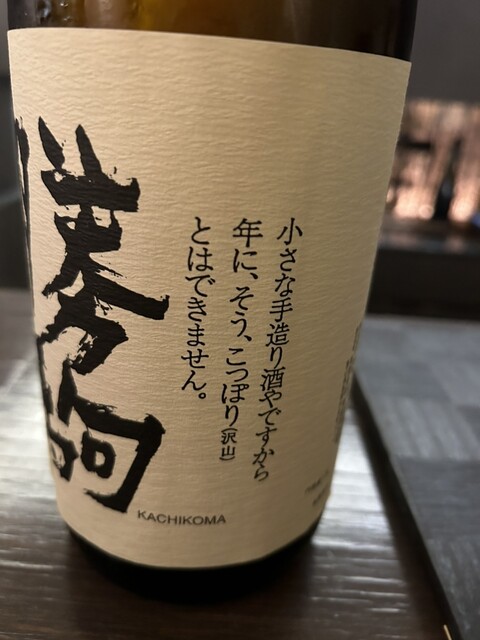 勝駒
小さな手造り酒やですから
年に、そう、こっぽり(沢山)
とはできません。
KACHIKOMA